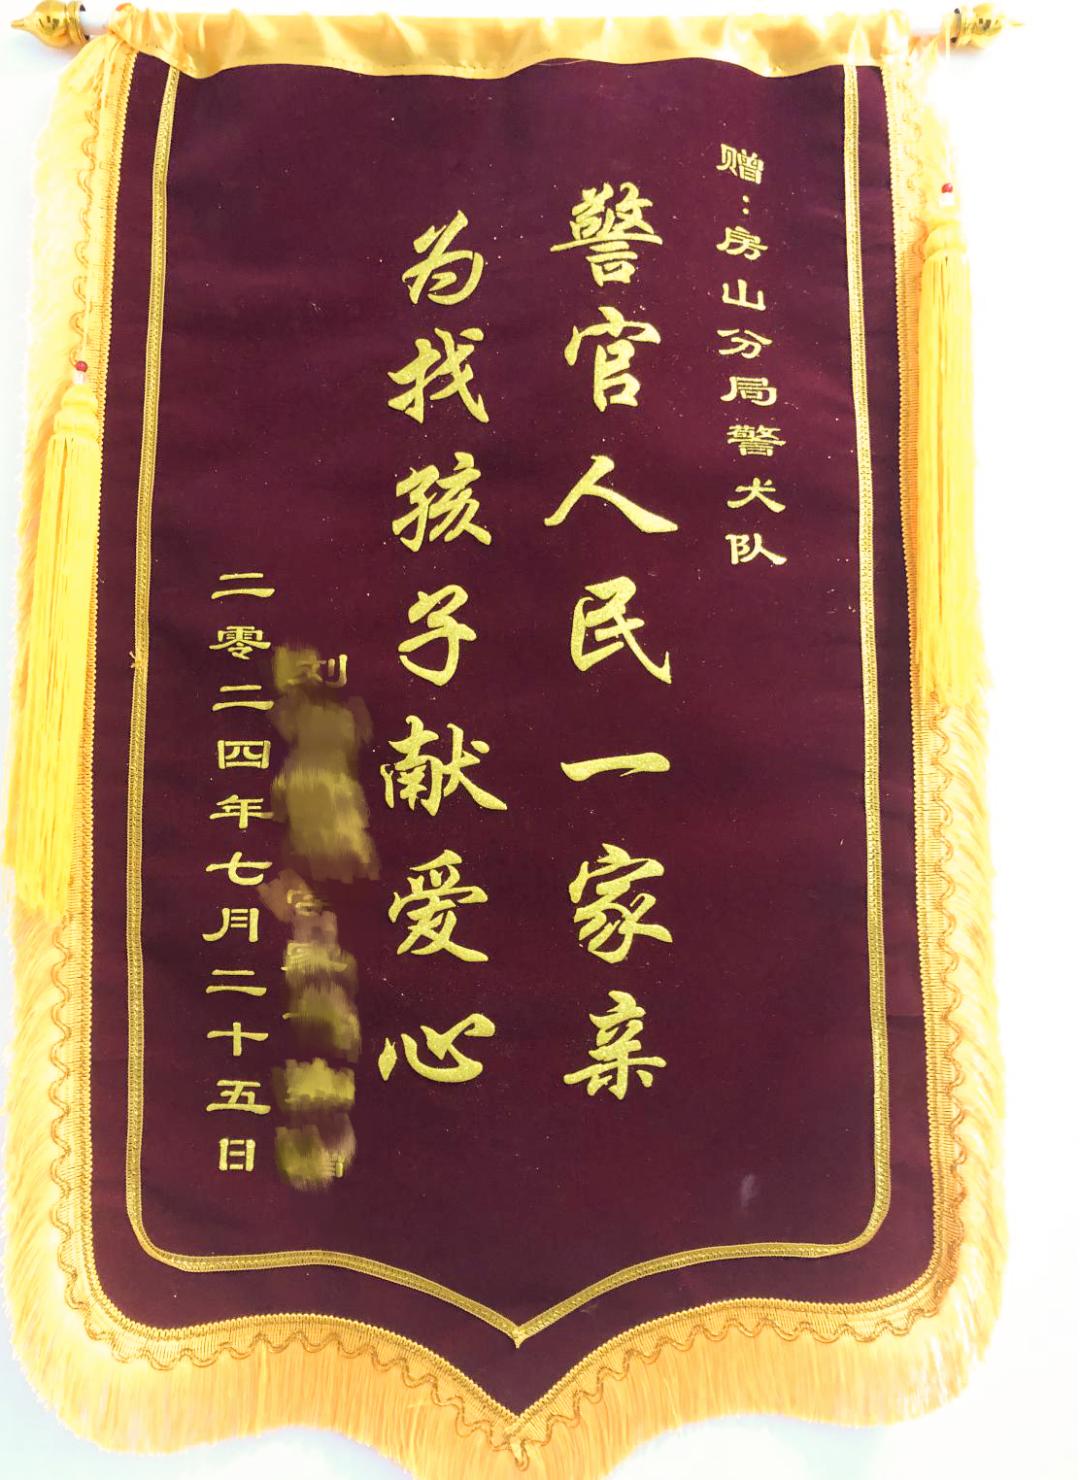 赠：房山分局警犬队
警官人民一家亲
为找孩子献爱心
刘
二零二四年七月二十五日